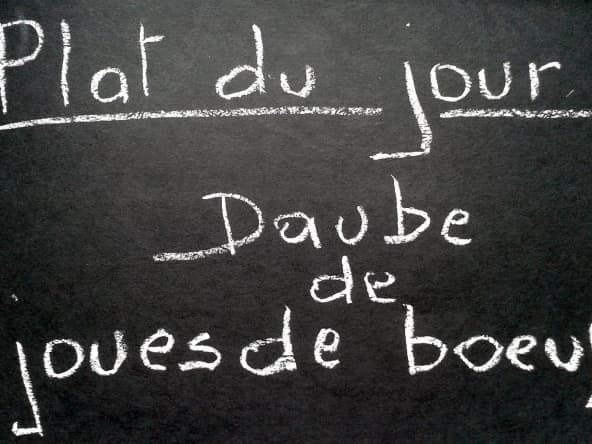 Plat du jour
Daube
de
joues de boeuf